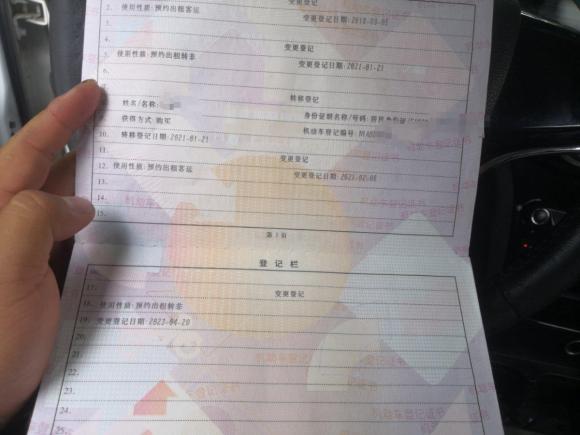 变更登记
2. 使用性质:预约出租客运
3. 变更登记日期:2018-09-05
4. 变更登记
5. 使用性质:预约出租转非
变更登记日期:2021-01-21
6.
转移登记
姓名/名称:
身份证明名称/号码:居民身份证
获得方式:购买
机动车登记编号:
10. 转移登记日期:2021-01-21
11. 变更登记
12. 使用性质:预约出租客运
变更登记日期:2021-02-08
13.
14.
15.
第 3 页
登 记 栏
16.
17. 变更登记
18. 使用性质:预约出租转非
19. 变更登记日期:2023-04-20
20.
21.
22.
23.
24.
25.